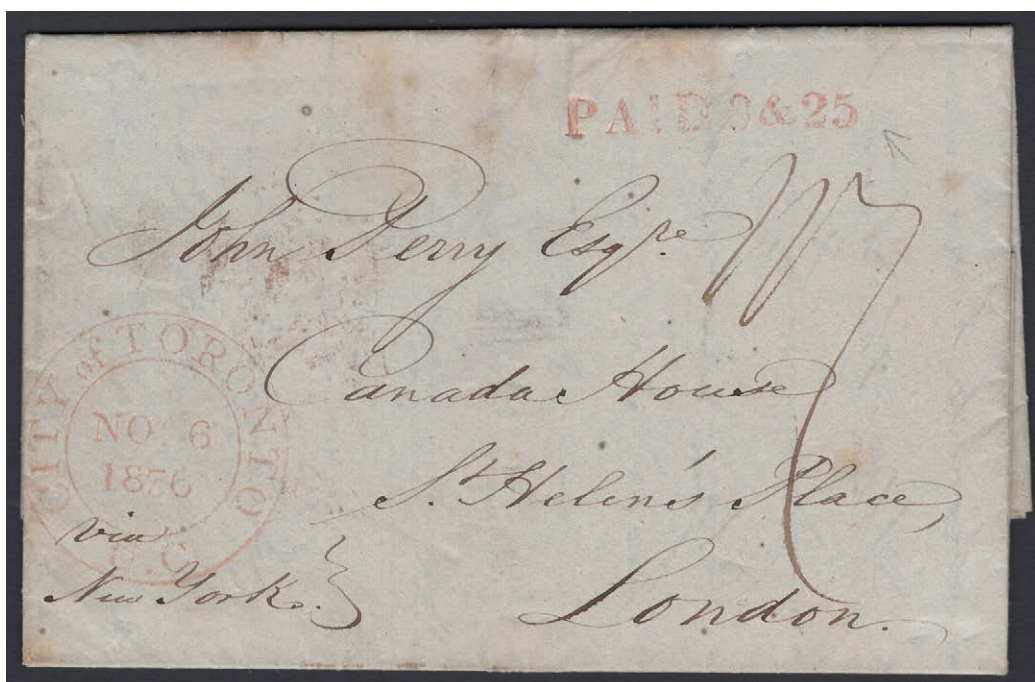 PAID 9&25
John Perry Esqre
Canada House
St Helen's Place,
London.
CITY of TORONTO
NO 6
1836
U.C
via
New York.